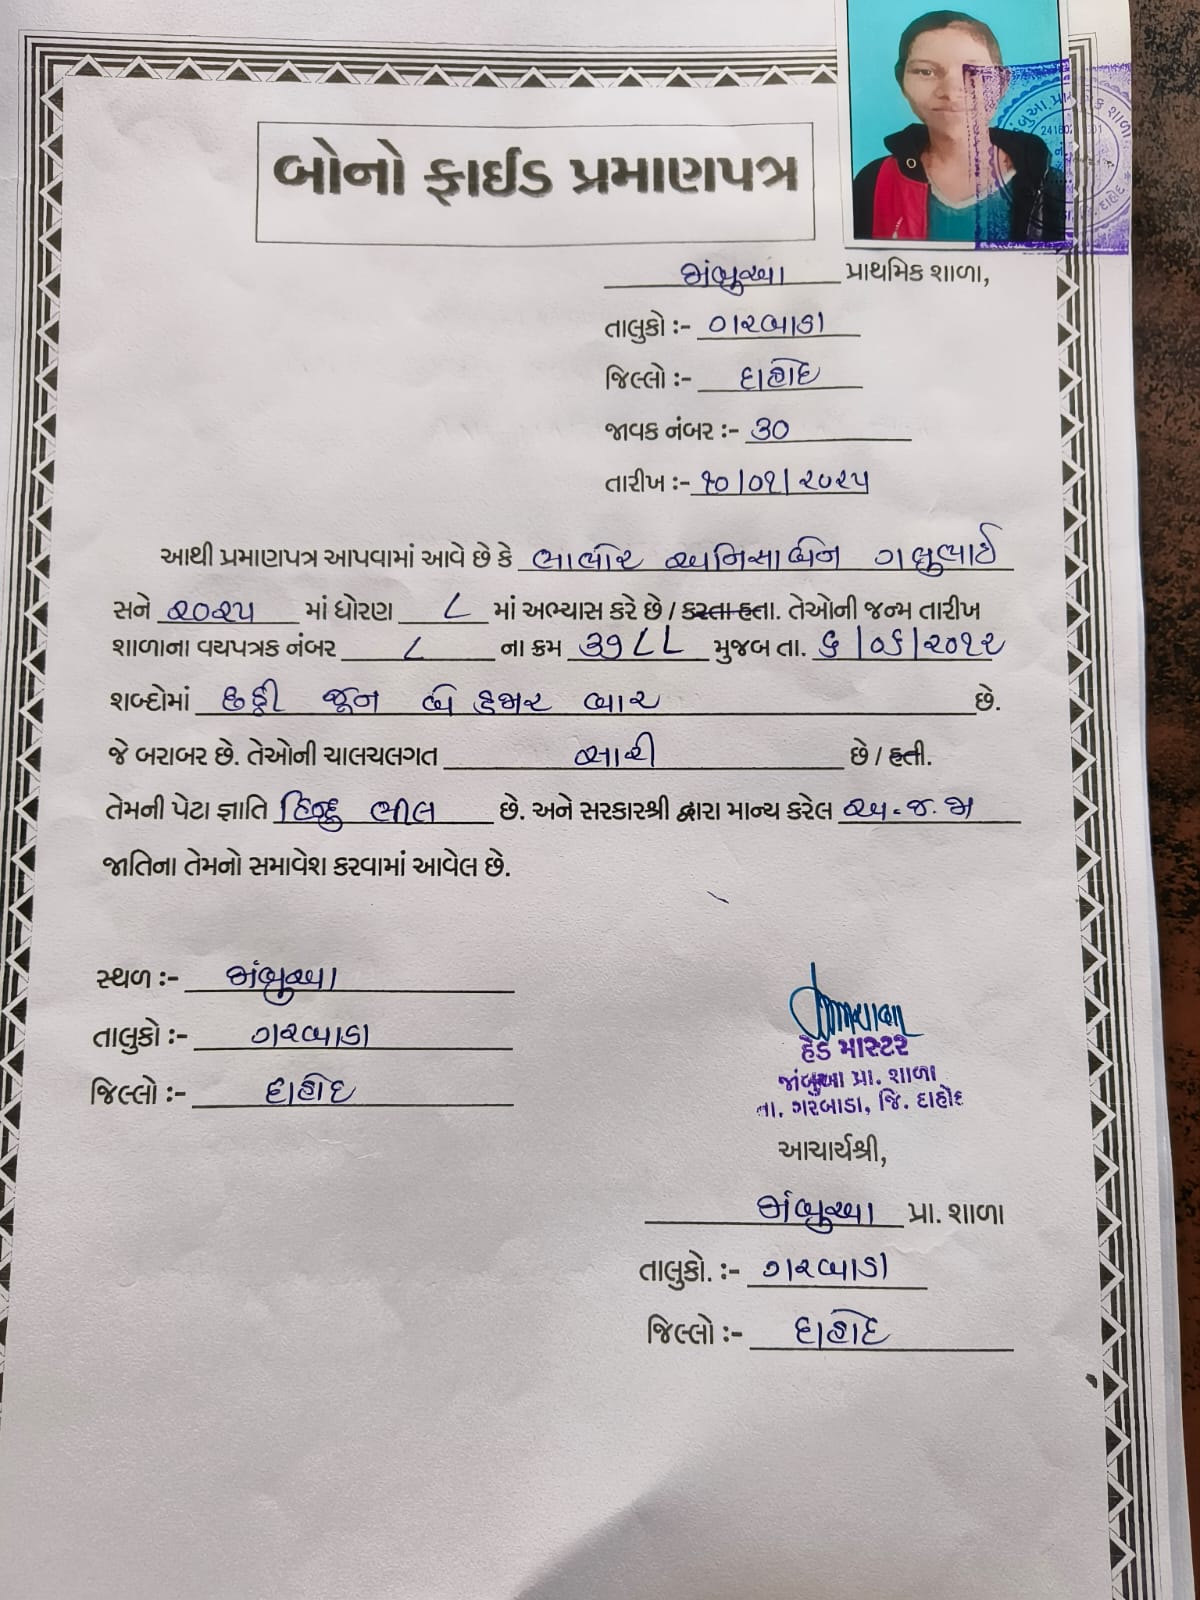 બોનો ફાઈડ પ્રમાણપત્ર
જાંબુઆ પ્રાથમિક શાળા,
તાલુકો :- ગરબાડા
જિલ્લો :- દાહોદ
જાવક નંબર :- ૩૦
તારીખ :- ૧૦/૦૧/૨૦૨૫
આથી પ્રમાણપત્ર આપવામાં આવે છે કે ભાભોર અનિસાબેન ગલુભાઈ
સને ૨૦૨૫ માં ધોરણ ૮ માં અભ્યાસ કરે છે / કરતા હતા. તેઓની જન્મ તારીખ
શાળાના વયપત્રક નંબર ૮ ના ક્રમ ૩૧૮૮ મુજબ તા. ૬/૦૬/૨૦૧૨
શબ્દોમાં છઠ્ઠી જૂન બે હજાર બાર છે.
જે બરાબર છે. તેઓની ચાલચલગત સારી છે / હતી.
તેમની પેટા જ્ઞાતિ હિન્દુ ભીલ છે. અને સરકારશ્રી દ્વારા માન્ય કરેલ અ.જ.જા
જાતિના તેમનો સમાવેશ કરવામાં આવેલ છે.
સ્થળ :- જાંબુઆ
તાલુકો :- ગરબાડા
જિલ્લો :- દાહોદ
હેડ માસ્ટર
જાંબુઆ પ્રા. શાળા
તા. ગરબાડા, જિ. દાહોદ
આચાર્યશ્રી,
જાંબુઆ પ્રા. શાળા
તાલુકો. :- ગરબાડા
જિલ્લો :- દાહોદ